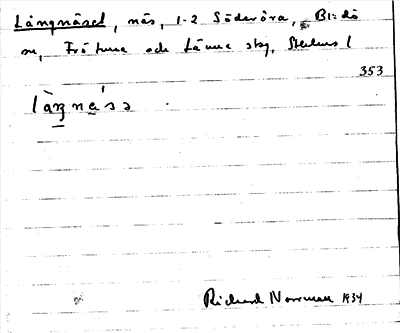 Långnäset, näs, 1-2 Söderöra, Blidö
sn, Frötuna och Länna skg, Sthlms l
353
làŋnǽsə
Richard Norrman 1934